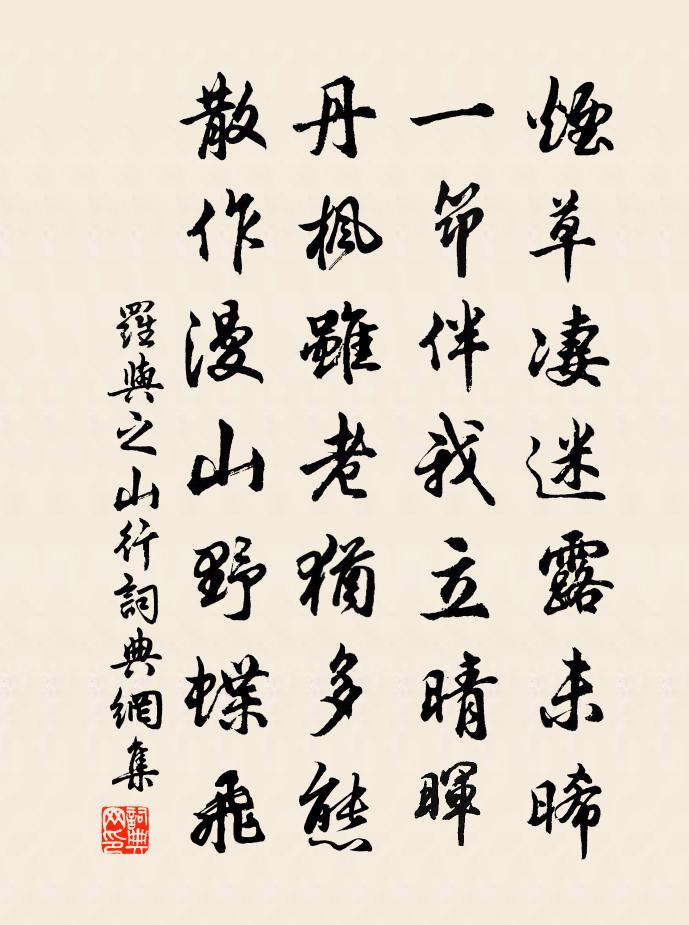 煙草凄迷露未晞
一笻伴我立晴暉
丹楓雖老猶多態
散作漫山野蝶飛
羅與之山行詞典網集
詞典网印